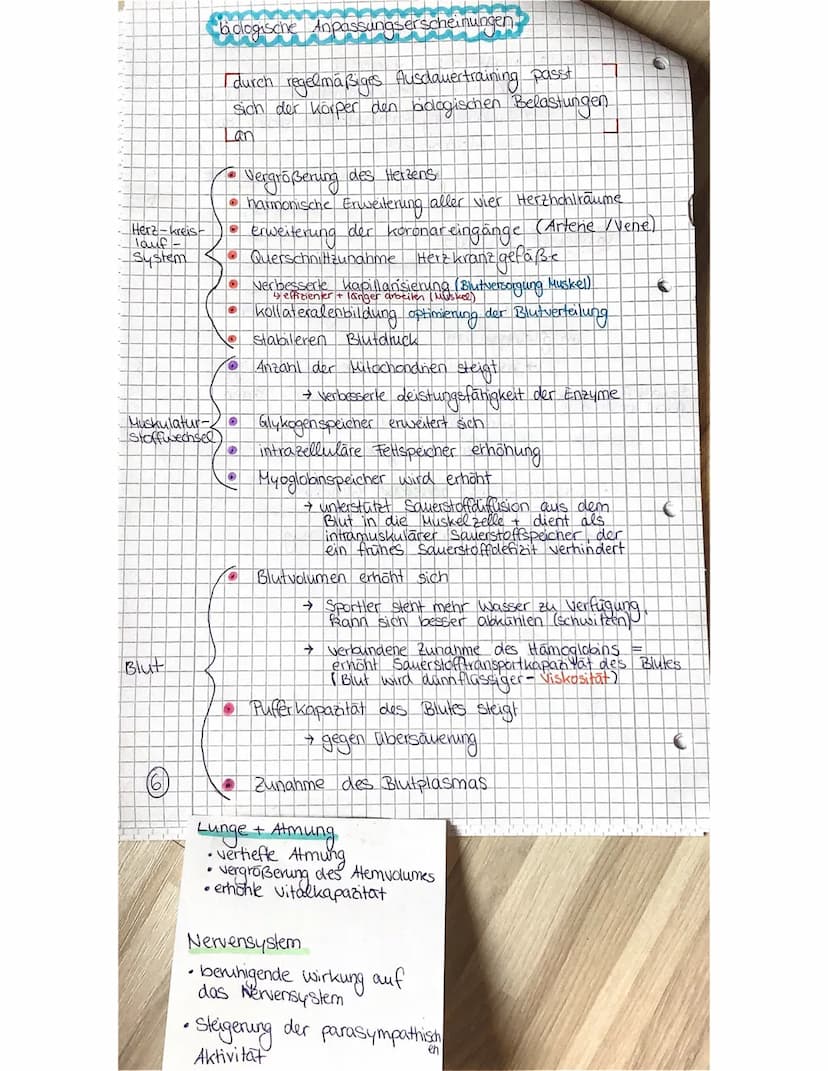 biologische Anpassungserscheinungen
durch regelmäßiges Ausdauertraining passt
sich der Körper den biologischen Belastungen
an
Herz-kreis-
lauf-
System
• Vergrößerung des Herzens
• harmonische Erweiterung aller vier Herzhohlräume
• erweiterung der koronareingänge (Arterie/Vene)
• Querschnittzunahme Herzkranzgefäße
• verbesserte kapillarisierung (Blutversorgung Muskel)
↳ effizienter + länger arbeiten (Muskel)
• kollateralenbildung optimierung der Blutverteilung
• stabileren Blutdruck
Muskulatur-
stoffwechsel
• Anzahl der Mitochondrien steigt
→ verbesserte Leistungsfähigkeit der Enzyme
• Glykogenspeicher erweitert sich
• intrazelluläre Fettspeicher erhöhung
• Myoglobinspeicher wird erhöht
→ unterstützt Sauerstoffdiffusion aus dem
Blut in die Muskelzelle + dient als
intramuskulärer Sauerstoffspeicher, der
ein frühes Sauerstoffdefizit verhindert
Blut
• Blutvolumen erhöht sich
→ Sportler steht mehr Wasser zu Verfügung,
kann sich besser abkühlen (schwitzen)
→ verbundene Zunahme des Hämoglobins =
erhöht Sauerstofftransportkapazität des Blutes
(Blut wird dünnflüssiger - Viskosität)
• Pufferkapazität des Blutes steigt
→ gegen Übersäuerung
• Zunahme des Blutplasmas
6
Lunge + Atmung
• vertiefte Atmung
• vergrößerung des Atemvolumes
• erhöhte Vitalkapazität
Nervensystem
• beruhigende wirkung auf
das Nervensystem
• Steigerung der parasympathisch
en
Aktivität